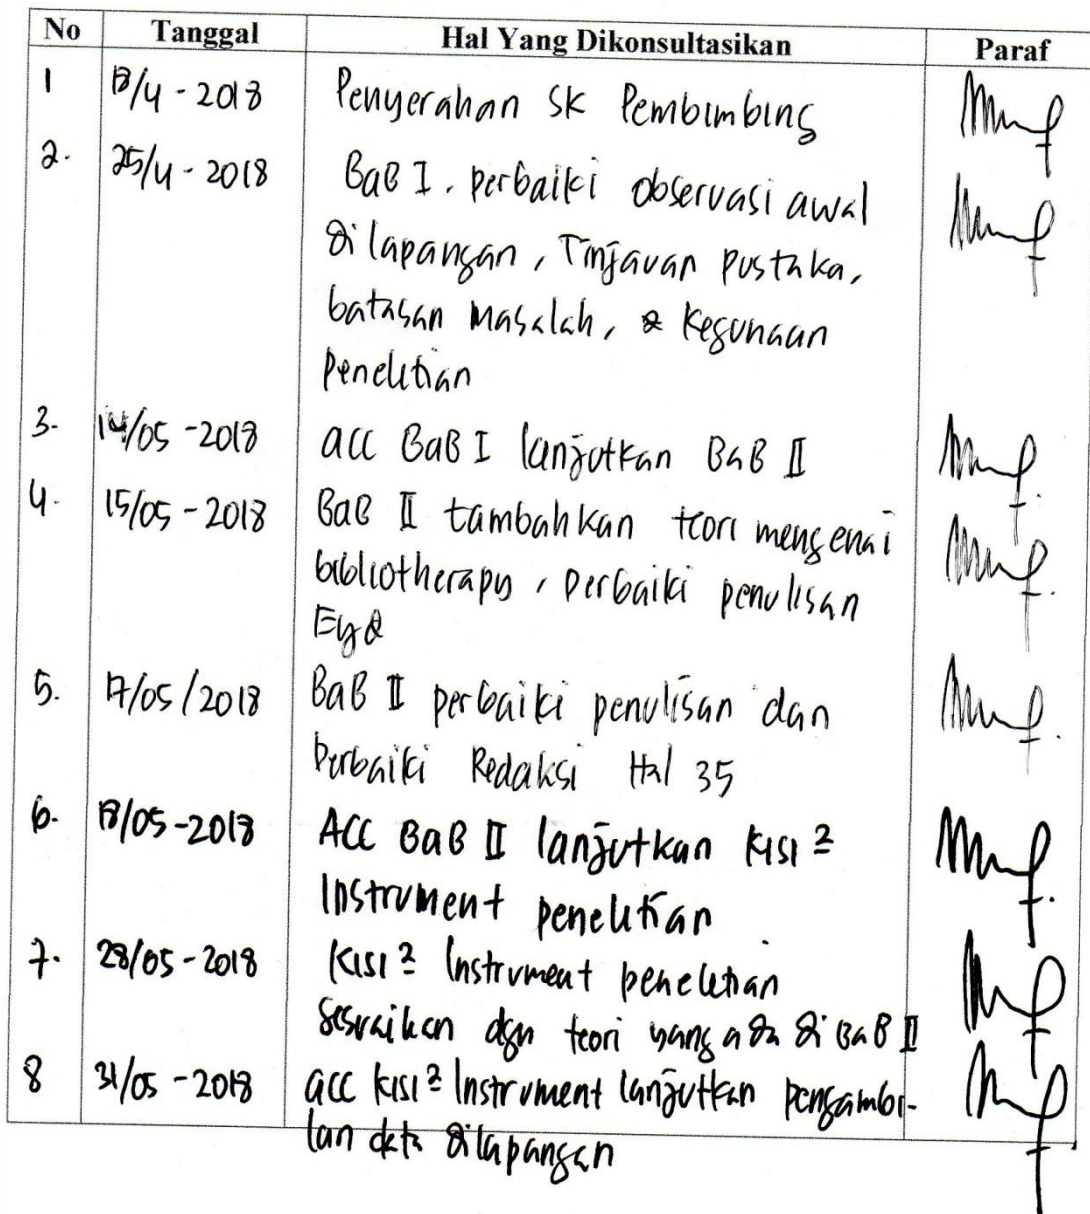 No Tanggal Hal Yang Dikonsultasikan Paraf
1 18/4 - 2018 Penyerahan SK Pembimbing
2. 25/4 - 2018 BaB I. perbaiki observasi awal
di lapangan, Tinjauan pustaka,
batasan masalah, & Kegunaan
Penelitian
3. 14/05 - 2018 acc BaB I lanjutkan BaB II
4. 15/05 - 2018 BaB II tambahkan teori mengenai
bibliotherapy, perbaiki penulisan
Eyd
5. 17/05/2018 BaB II perbaiki penulisan dan
perbaiki Redaksi Hal 35
6. 18/05-2018 ACC BaB II lanjutkan kisi ²
Instrument penelitian
7. 28/05-2018 Kisi ² Instrument penelitian
sesuaikan dgn teori yang ada di BaB II
8 31/05 - 2018 acc kisi ² Instrument lanjutkan pengambi-
lan data dilapangan